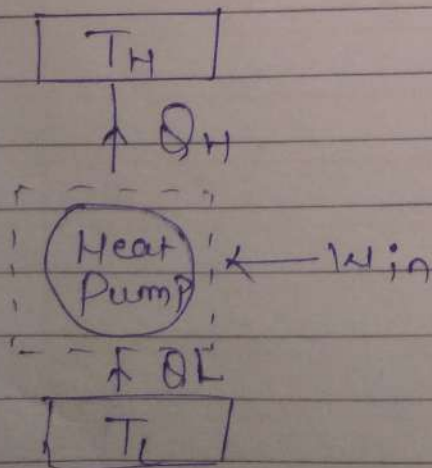 TH
QH
Heat
Pump
Win
QL
TL